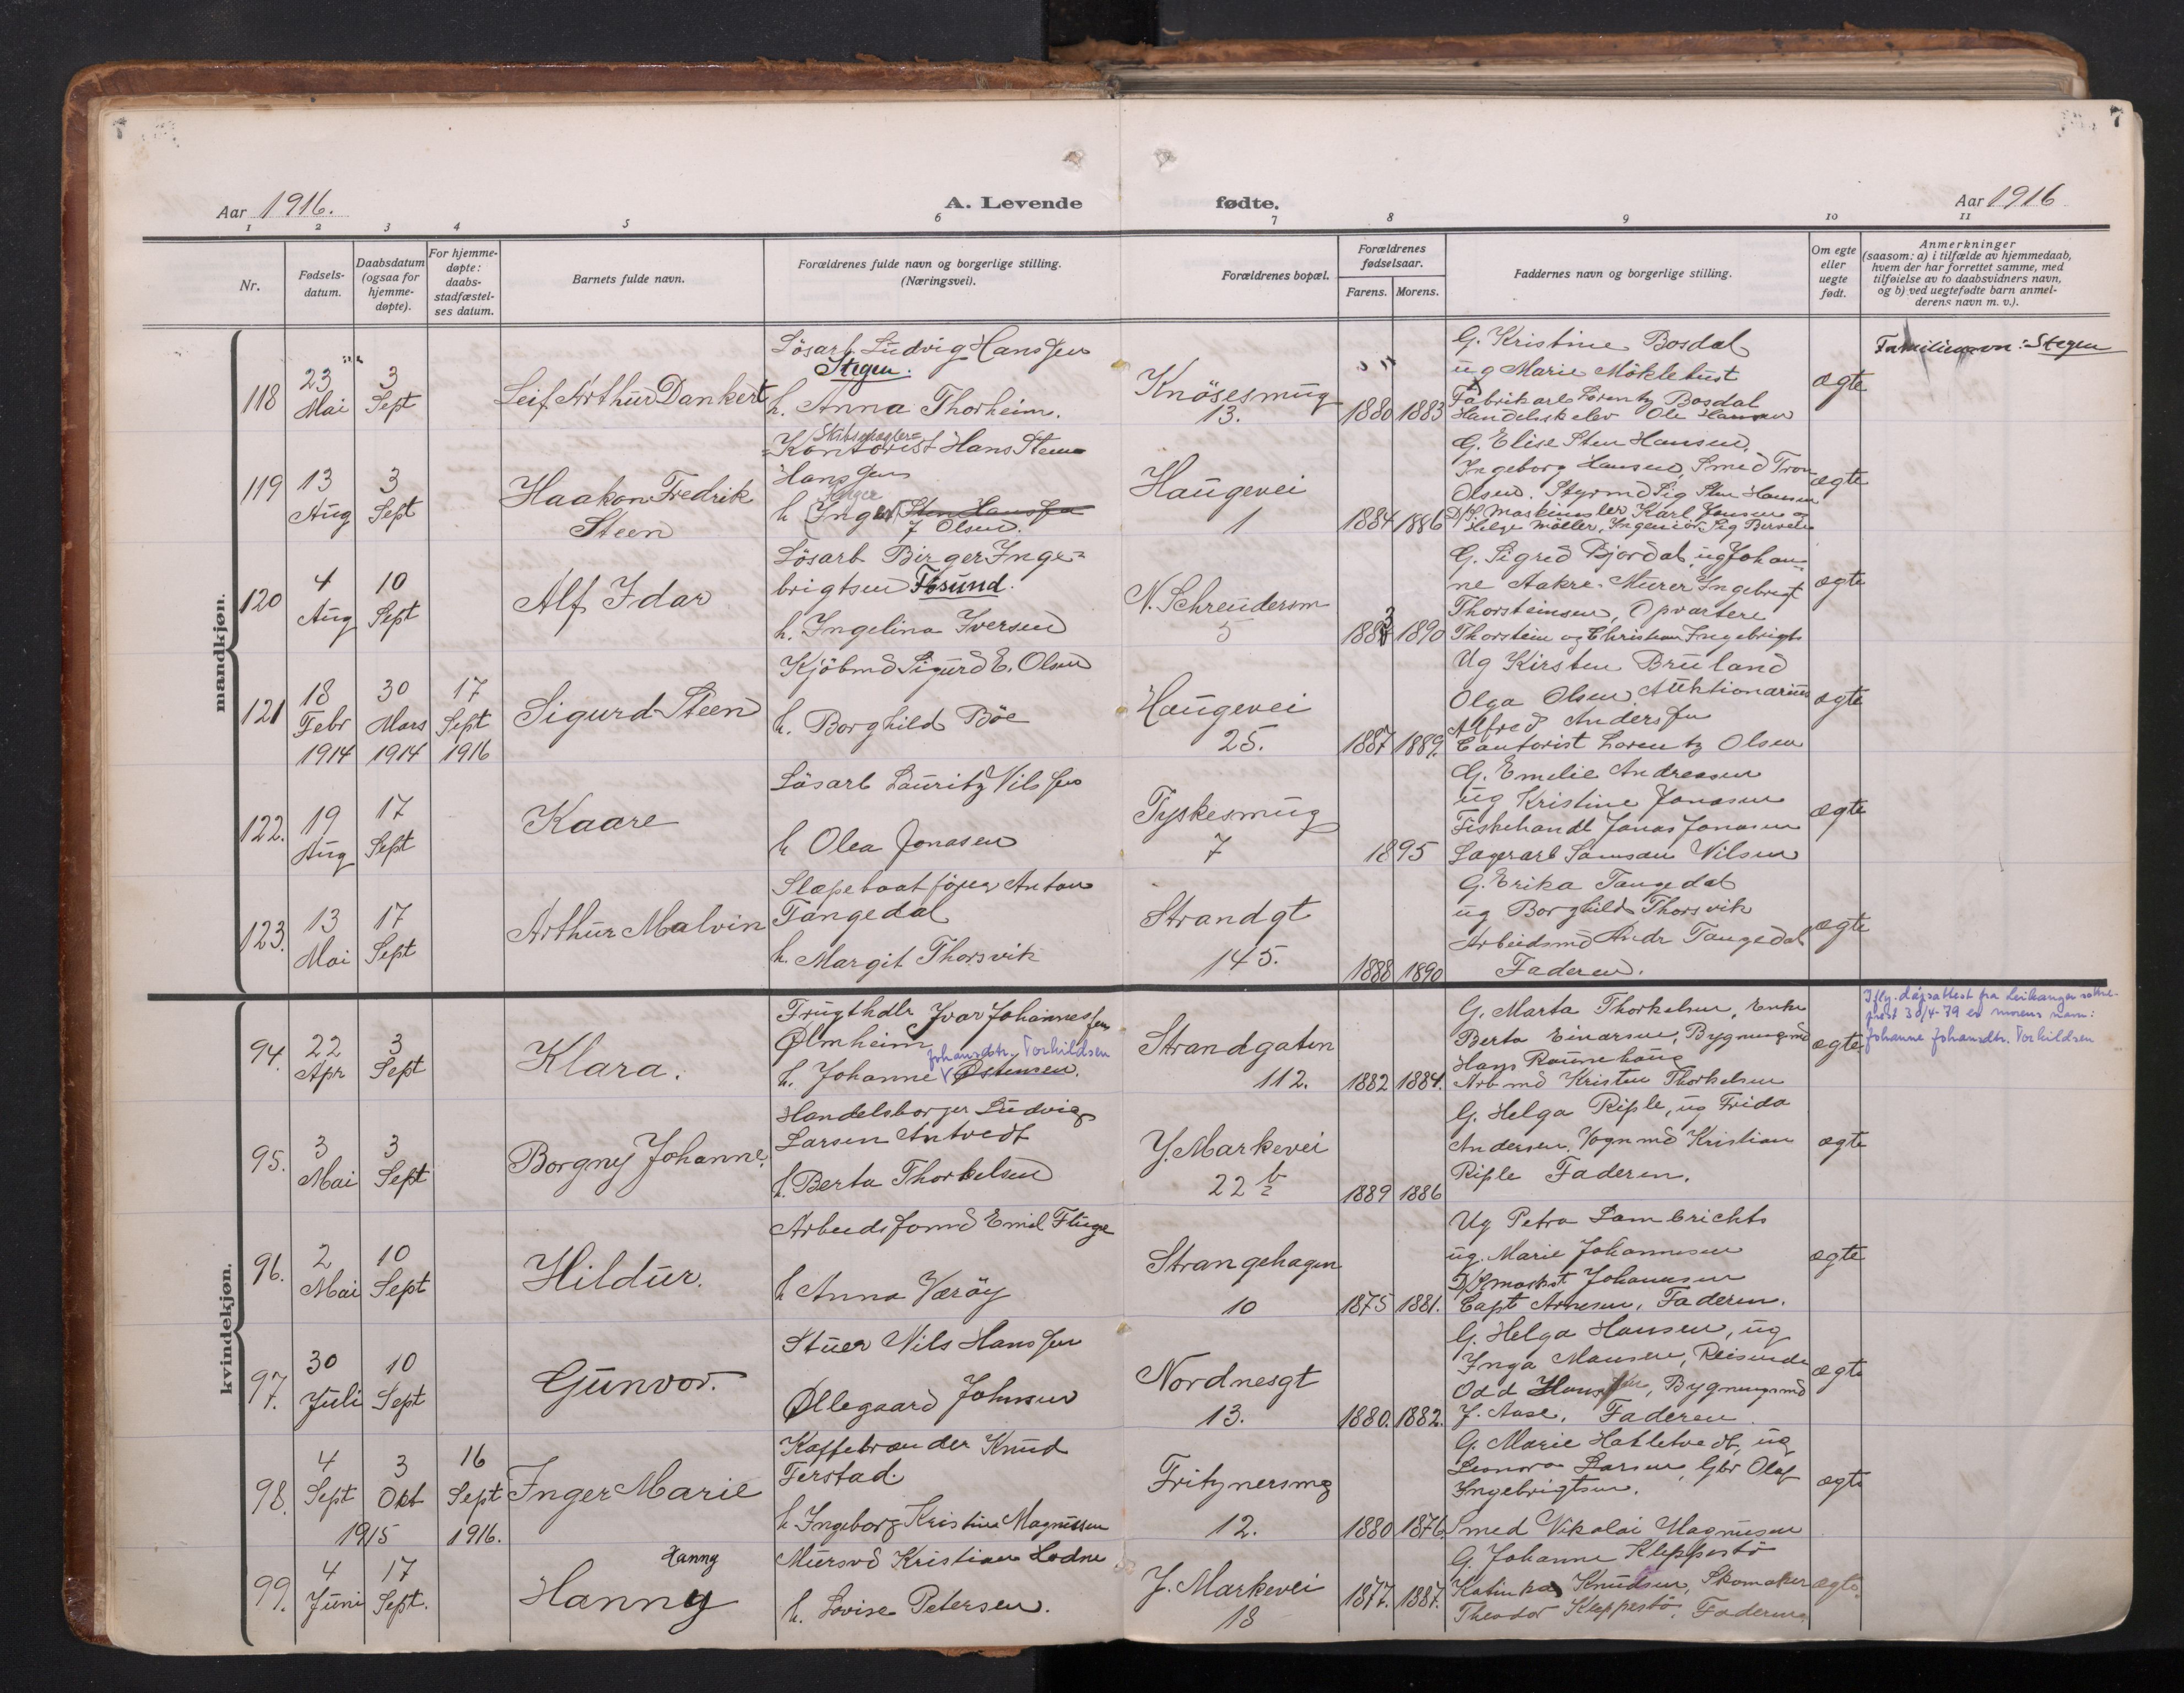 7
7
Aar 1916.
A. Levende
fødte.
Aar 1916
1 2 3 4 5 6 7 8 9 10 11
Nr.
Fødsels-
datum.
Daabsdatum
(ogsaa for
hjemme-
døpte).
For hjemme-
døpte:
daabs-
stadfæstel-
ses datum.
Barnets fulde navn.
Forældrenes fulde navn og borgerlige stilling.
(Næringsvei).
Forældrenes bopæl.
Forældrenes
fødselsaar.
Farens. Morens.
Faddernes navn og borgerlige stilling.
Om egte
eller
uegte
født.
Anmerkninger
(saasom: a) i tilfælde av hjemmedaab,
hvem der har forrettet samme, med
tilføielse av to daabsvidners navn,
og b) ved uegtefødte barn anmel-
derens navn m. v.).
mandkjøn.
118
23
Mai
3
Sept
Leif Arthur Dankert
Lösarb. Ludvig Hanssen
Stegen.
h. Anna Thorheim.
Knösesmug
13.
1880 1883
G. Kristine Bosdal
ug Marie Möklebust
Fabrikarb Lorentz Bosdal
Handelselev Ole Hansen
ægte
Familienavn: Stegen
119
13
Aug
3
Sept
Haakon Fredrik
Steen
Skibsmægler=
Kontorist Hans Steen
Hanssen
Inger
h Inger Sten Hanssen
f Olsen.
Haugevei
1
1884 1886
G. Elise Sten Hansen,
Ingeborg Hansen, Smed Tron
Olsen. Styrmd Sig Sten Hansen
D/S Maskinmster Karl Jensen og
Helge Möller, Ingeniör Sig Berven
ægte
120
4
Aug
10
Sept
Alf Idar
Lösarb Birger Inge=
brigtsen Fosund.
h. Ingelina Iversen
N. Schreudersm
5
1883 1890
G. Sigrid Bjordal, ug Johan=
ne Aakre. Murer Ingebrigt
Thorsteinsen, Opvartere
Thorstein og Christian Ingebrigts
ægte
121
18
Febr
1914
30
Mars
1914
17
Sept
1916
Sigurd Steen
Kjöbmd Sigurd E. Olsen
h. Borghild Böe
Haugevei
25.
1887 1889.
Ug Kirsten Bruland
Olga Olsen. Auktionarius
Alfred Anderssen
Contorist Lorentz Olsen
ægte
122.
19
Aug
17
Sept
Kaare
Lösarb Lauritz Nilssen
h Olea Jonasen
Tyskesmug
7
1895
G. Emilie Andreasen
ug Kristine Jonasen
Fiskehandl Jonas Jonasen
Lagerarb Samson Nilsen
ægte
123.
13
Mai
17
Sept
Arthur Malvin
Slæpebaatförer Anton
Tangedal
h. Margit Thorsvik
Strandgt
145.
1888 1890
G. Erika Tangedal
ug Borghild Thorsvik
Arbeidsmd Andr Tangedal
Faderen.
ægte
kvindekjøn.
94.
22
Apr
3
Sept
Klara.
Frugthdlr Ivar Johannessen
Ølmheim
Johansdtr. Torkildsen
h. Johanne Østensen.
Strandgaten
112.
1882 1884.
G. Marta Thorkelsen, Enke
Berta Einarsen, Bygningsmd
Hans Raunehaug
Arb md Kristen Thorkelsen
ægte
Iflg. dåpsattest fra Leikanger sokne-
prest 30/4-79 er morens navn:
Johanne Johansdtr. Torkildsen
95.
3
Mai
3
Sept
Borgny Johanne.
Handelsborger Ludvig
Larsen Antvedt
h. Berta Thorkelsen
Y. Markevei
22 b
1889 1886
G. Helga Riple, ug Frida
Andersen, Vognmd Kristian
Riple Faderen.
ægte
96.
2
Mai
10
Sept
Hildur.
Arbeidsformd Emil Fluge
h Anna Værøy
Strangehagen
10
1875 1881.
Ug Petra Lambrichts
ug. Marie Johannesen
D/S maskst Johannesen
Capt Arnesen, Faderen.
ægte
97.
30
Juli
10
Sept
Gunvor.
Stuer Nils Hanssen
Øllegaard Johnsen
Nordnesgt
13.
1880. 1882.
G. Helga Hansen, ug
Inga Monsen, Reisende
Odd Hanssen, Bygningsmd
J. Aase, Faderen.
ægte
98.
4
Sept
3
Okt
1915
16
Sept
1916.
Inger Marie
Kaffebrænder Knud
Ferstad.
h. Ingeborg Kristine Magnussen
Fritznersmg
12.
1880 1876
G. Marie Hatletvedt, ug
Leonora Larsen, Gbr Olaf
Ingebrigtsen.
Smed Nikolai Magnusen
ægte
99.
4
Juni
17
Sept.
Hanny
Hanny
Mursvd Kristian Hodne
h. Lovise Petersen.
Y. Markevei
18
1877. 1887.
G. Johanne Kleppestö
Katinka Knudsen, Skomaker
Theodor Kleppestö, Faderen
ægte.